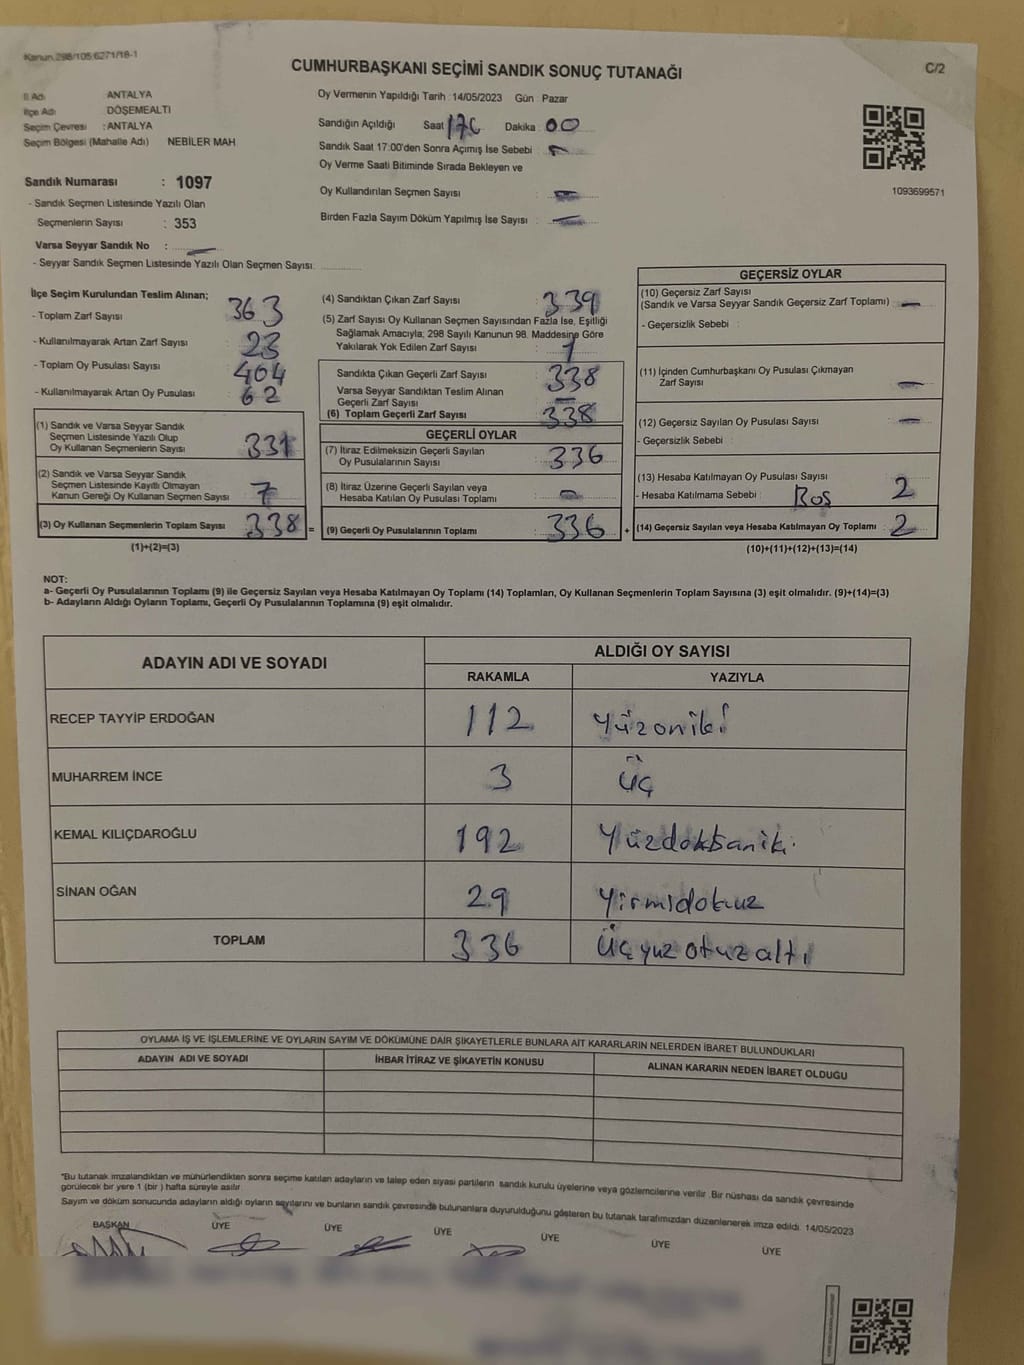 Kanun.298/105;6271/18-1
C/2
CUMHURBAŞKANI SEÇİMİ SANDIK SONUÇ TUTANAĞI
İl Adı : ANTALYA
İlçe Adı : DÖŞEMEALTI
Seçim Çevresi : ANTALYA
Seçim Bölgesi (Mahalle Adı) NEBİLER MAH
Sandık Numarası : 1097
- Sandık Seçmen Listesinde Yazılı Olan
Seçmenlerin Sayısı : 353
Varsa Seyyar Sandık No :
- Seyyar Sandık Seçmen Listesinde Yazılı Olan Seçmen Sayısı:
Oy Vermenin Yapıldığı Tarih : 14/05/2023 Gün : Pazar
Sandığın Açıldığı Saat Dakika : 00
Sandık Saat 17:00'den Sonra Açımış İse Sebebi :
Oy Verme Saati Bitiminde Sırada Bekleyen ve
Oy Kullandırılan Seçmen Sayısı :
Birden Fazla Sayım Döküm Yapılmış İse Sayısı :
1093699571
İlçe Seçim Kurulundan Teslim Alınan;
- Toplam Zarf Sayısı : 363
- Kullanılmayarak Artan Zarf Sayısı : 23
- Toplam Oy Pusulası Sayısı : 404
- Kullanılmayarak Artan Oy Pusulası : 62
(1) Sandık ve Varsa Seyyar Sandık
Seçmen Listesinde Yazılı Olup
Oy Kullanan Seçmenlerin Sayısı : 331
(2) Sandık ve Varsa Seyyar Sandık
Seçmen Listesinde Kayıtlı Olmayan
Kanun Gereği Oy Kullanan Seçmen Sayısı : 7
(3) Oy Kullanan Seçmenlerin Toplam Sayısı : 338 =
(1)+(2)=(3)
(4) Sandıktan Çıkan Zarf Sayısı : 339
(5) Zarf Sayısı Oy Kullanan Seçmen Sayısından Fazla İse, Eşitliği
Sağlamak Amacıyla; 298 Sayılı Kanunun 98. Maddesine Göre
Yakılarak Yok Edilen Zarf Sayısı : 1
Sandıkta Çıkan Geçerli Zarf Sayısı : 338
Varsa Seyyar Sandıktan Teslim Alınan
Geçerli Zarf Sayısı : —
(6) Toplam Geçerli Zarf Sayısı : 338
GEÇERLİ OYLAR
(7) İtiraz Edilmeksizin Geçerli Sayılan
Oy Pusulalarının Sayısı : 336
(8) İtiraz Üzerine Geçerli Sayılan veya
Hesaba Katılan Oy Pusulası Toplamı :
(9) Geçerli Oy Pusulalarının Toplamı : 336 +
GEÇERSİZ OYLAR
(10) Geçersiz Zarf Sayısı
(Sandık ve Varsa Seyyar Sandık Geçersiz Zarf Toplamı) : —
- Geçersizlik Sebebi :
(11) İçinden Cumhurbaşkanı Oy Pusulası Çıkmayan
Zarf Sayısı : —
(12) Geçersiz Sayılan Oy Pusulası Sayısı : —
- Geçersizlik Sebebi :
(13) Hesaba Katılmayan Oy Pusulası Sayısı : 2
- Hesaba Katılmama Sebebi : Boş
(14) Geçersiz Sayılan veya Hesaba Katılmayan Oy Toplamı : 2
(10)+(11)+(12)+(13)=(14)
NOT:
a- Geçerli Oy Pusulalarının Toplamı (9) ile Geçersiz Sayılan veya Hesaba Katılmayan Oy Toplamı (14) Toplamları, Oy Kullanan Seçmenlerin Toplam Sayısına (3) eşit olmalıdır. (9)+(14)=(3)
b- Adayların Aldığı Oyların Toplamı, Geçerli Oy Pusulalarının Toplamına (9) eşit olmalıdır.
ADAYIN ADI VE SOYADI
ALDIĞI OY SAYISI
RAKAMLA YAZIYLA
RECEP TAYYİP ERDOĞAN 112 Yüzoniki
MUHARREM İNCE 3 Üç
KEMAL KILIÇDAROĞLU 192 Yüzdoksaniki
SİNAN OĞAN 29 Yirmidokuz
TOPLAM 336 Üçyuzotuzaltı
OYLAMA İŞ VE İŞLEMLERİNE VE OYLARIN SAYIM VE DÖKÜMÜNE DAİR ŞİKAYETLERLE BUNLARA AİT KARARLARIN NELERDEN İBARET BULUNDUKLARI
ADAYIN ADI VE SOYADI İHBAR İTİRAZ VE ŞİKAYETİN KONUSU ALINAN KARARIN NEDEN İBARET OLDUĞU
*Bu tutanak imzalandıktan ve mühürlendikten sonra seçime katılan adayların ve talep eden siyasi partilerin sandık kurulu üyelerine veya gözlemcilerine verilir. Bir nüshası da sandık çevresinde
görülecek bir yere 1 (bir) hafta süreyle asılır.
Sayım ve döküm sonucunda adayların aldığı oyların sayılarını ve bunların sandık çevresinde bulunanlara duyurulduğunu gösteren bu tutanak tarafımızdan düzenlenerek imza edildi. 14/05/2023
BAŞKAN ÜYE ÜYE ÜYE ÜYE ÜYE ÜYE